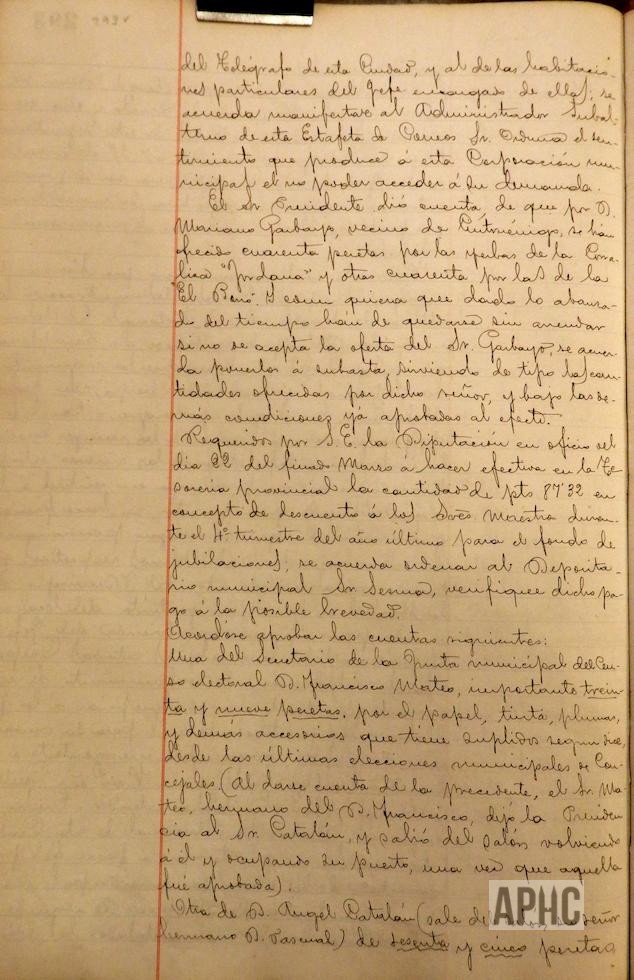 del Telégrafo de esta Ciudad, y al de las habitacio-
nes particulares del Jefe encargado de ellas; se
acuerda manifestar al Administrador Subal-
terno de esta Estafeta de Correos Sr. Orduña el sen-
timiento que produce á esta Corporación mu-
nicipal el no poder acceder á su demanda.
El Sr. Presidente dió cuenta de que por D.
Mariano Garbayo, vecino de Cintruénigo, se han
ofrecido cuarenta pesetas por las yerbas de la Corra-
liza "Jordana" y otras cuarenta por las de la
"El Bono". Y como quiera que dado lo abanza-
do del tiempo hán de quedarse sin arrendar
si no se acepta la oferta del Sr. Garbayo, se acuer-
da ponerlos á subasta, sirviendo de tipo las can-
tidades ofrecidas por dicho señor, y bajo las de-
más condiciones yá aprobadas al efecto.
Requeridos por S. E. la Diputación en oficio del
dia 22 del finado Marzo á hacer efectiva en la Te-
soreria provincial la cantidad de pts 87'32 en
concepto de descuento á los Sres Maestros duran-
te el 4º trimestre del año último para el fondo de
jubilaciones, se acuerda ordenar al Deposita-
rio municipal Sr. Sesma, verifique dicho pa-
go á la posible brevedad.
Acordóse aprobar las cuentas siguientes:
Una del Secretario de la Junta municipal del Cen-
so electoral D. Francisco Mateo, importante trein-
ta y nueve pesetas, por el papel, tinta, plumas,
y demás accesorios que tiene suplidos segun dice,
desde las últimas elecciones municipales de Con-
cejales. (Al darse cuenta de la precedente, el Sr. Ma-
teo, hermano del D. Francisco, dejó la Presiden-
cia al Sr. Catalán, y salió del salón volviendo
á él y ocupando su puesto, una vez que aquella
fué aprobada).
Otra de D. Angel Catalán (sale de señor
hermano D. Pascual) de sesenta y cinco pesetas
APHC